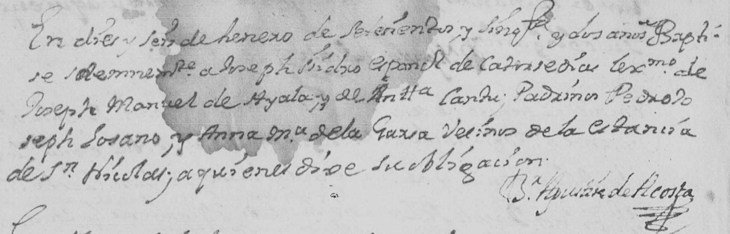 En dies y seis de henero de setesientos, y sinq.ta y dos años Bapti-
se solemnem.te a Joseph Isidro español de catorse dias lex.mo de
Joseph Manuel de Ayala y de Antt.a Cantu; Padrinos Pedro Jo
seph Losano, y Anna m.a de la Garsa Vesinos de la estancia
de Sn. Nicolas; a quienes dixe su obligacion.
B.r Agustin de Acosta